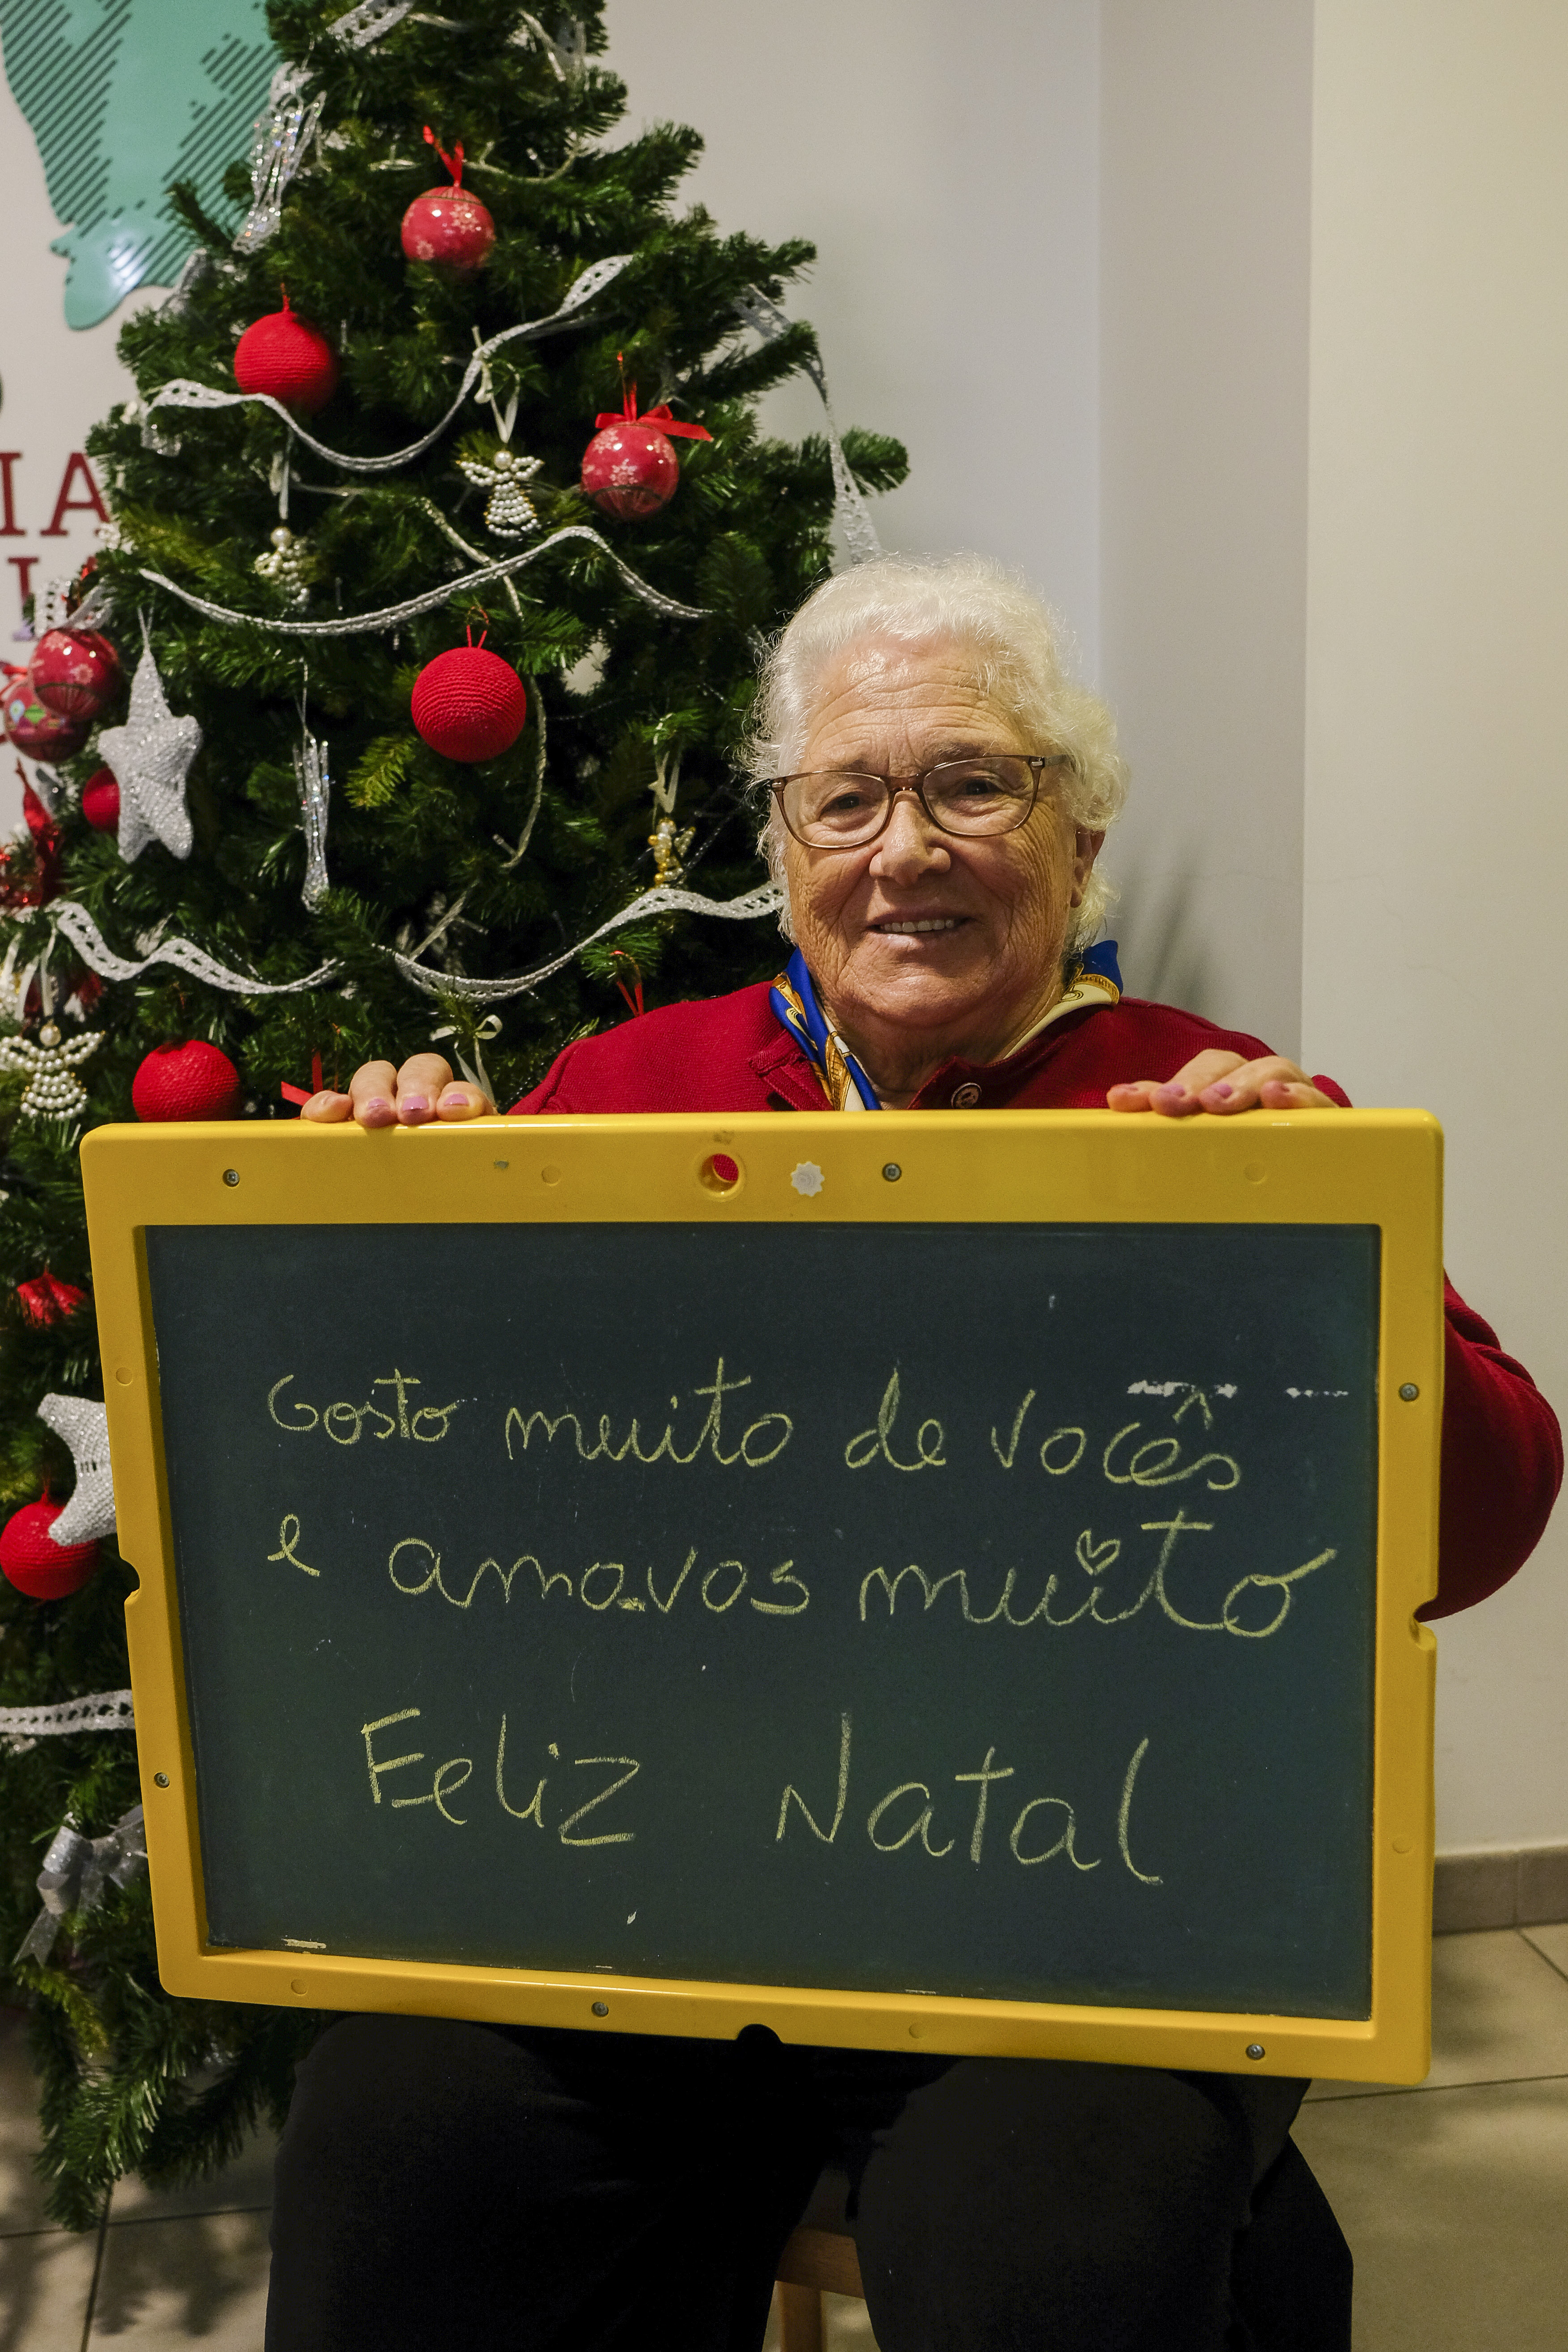 IA
Gosto muito de vocês
e ama.vos muito
Feliz Natal